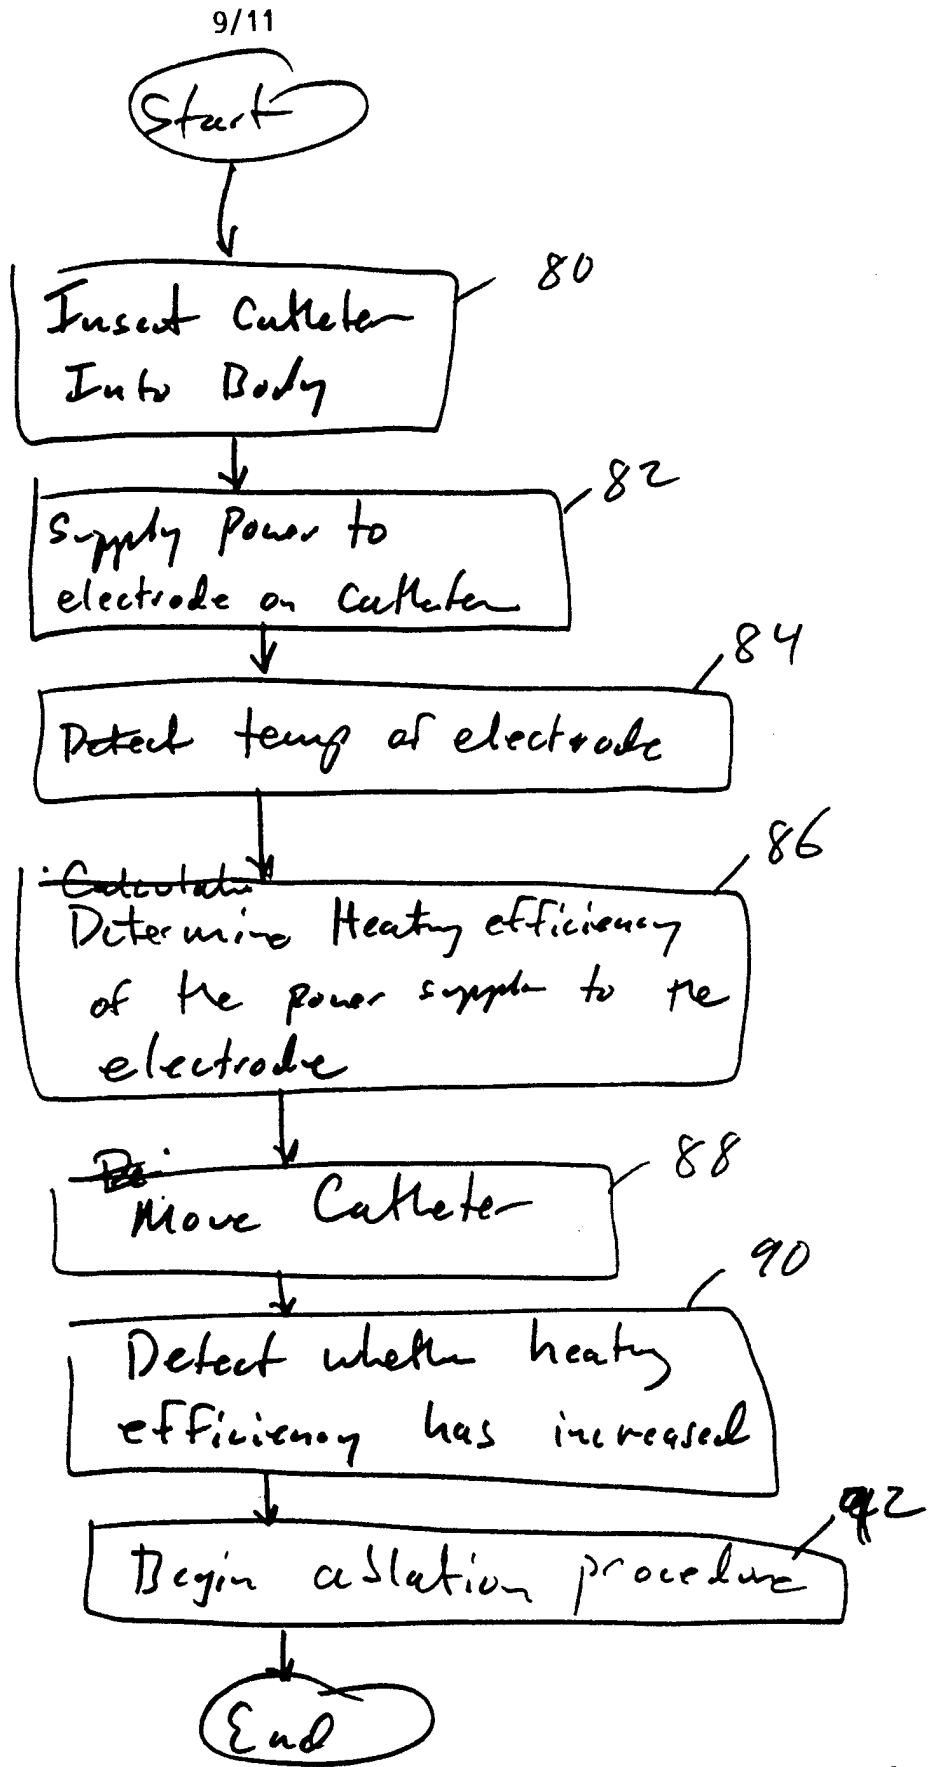 9/11
Start
80
Insert Catheter
Into Body
82
Supply Power to
electrode on Catheter
84
Detect temp of electrode
86
Calculate
Determine Heating efficiency
of the power supply to the
electrode
88
De
Move Catheter
90
Detect whether heating
efficiency has increased
92
Begin ablation procedure
End